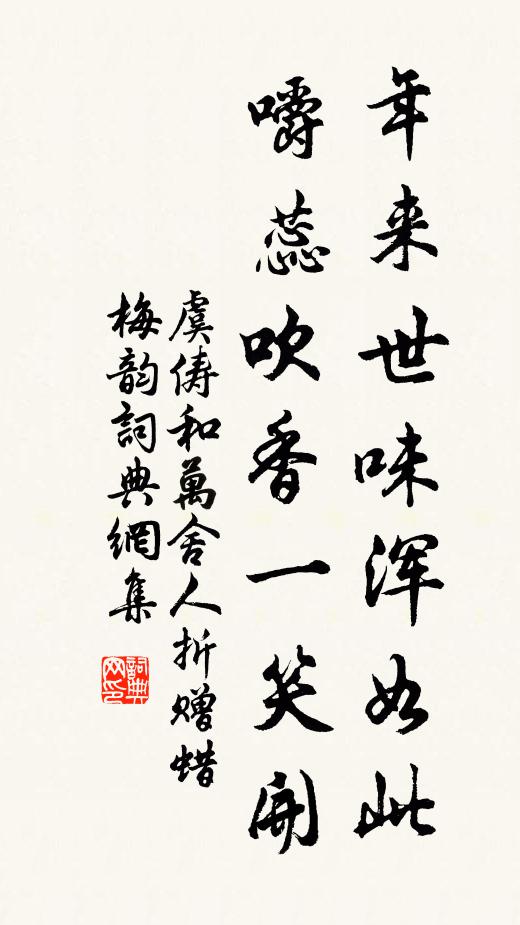 年来世味浑如此
嚼蕊吹香一笑開
虞俦和萬舍人折赠蜡
梅韵詞典網集
詞典网印